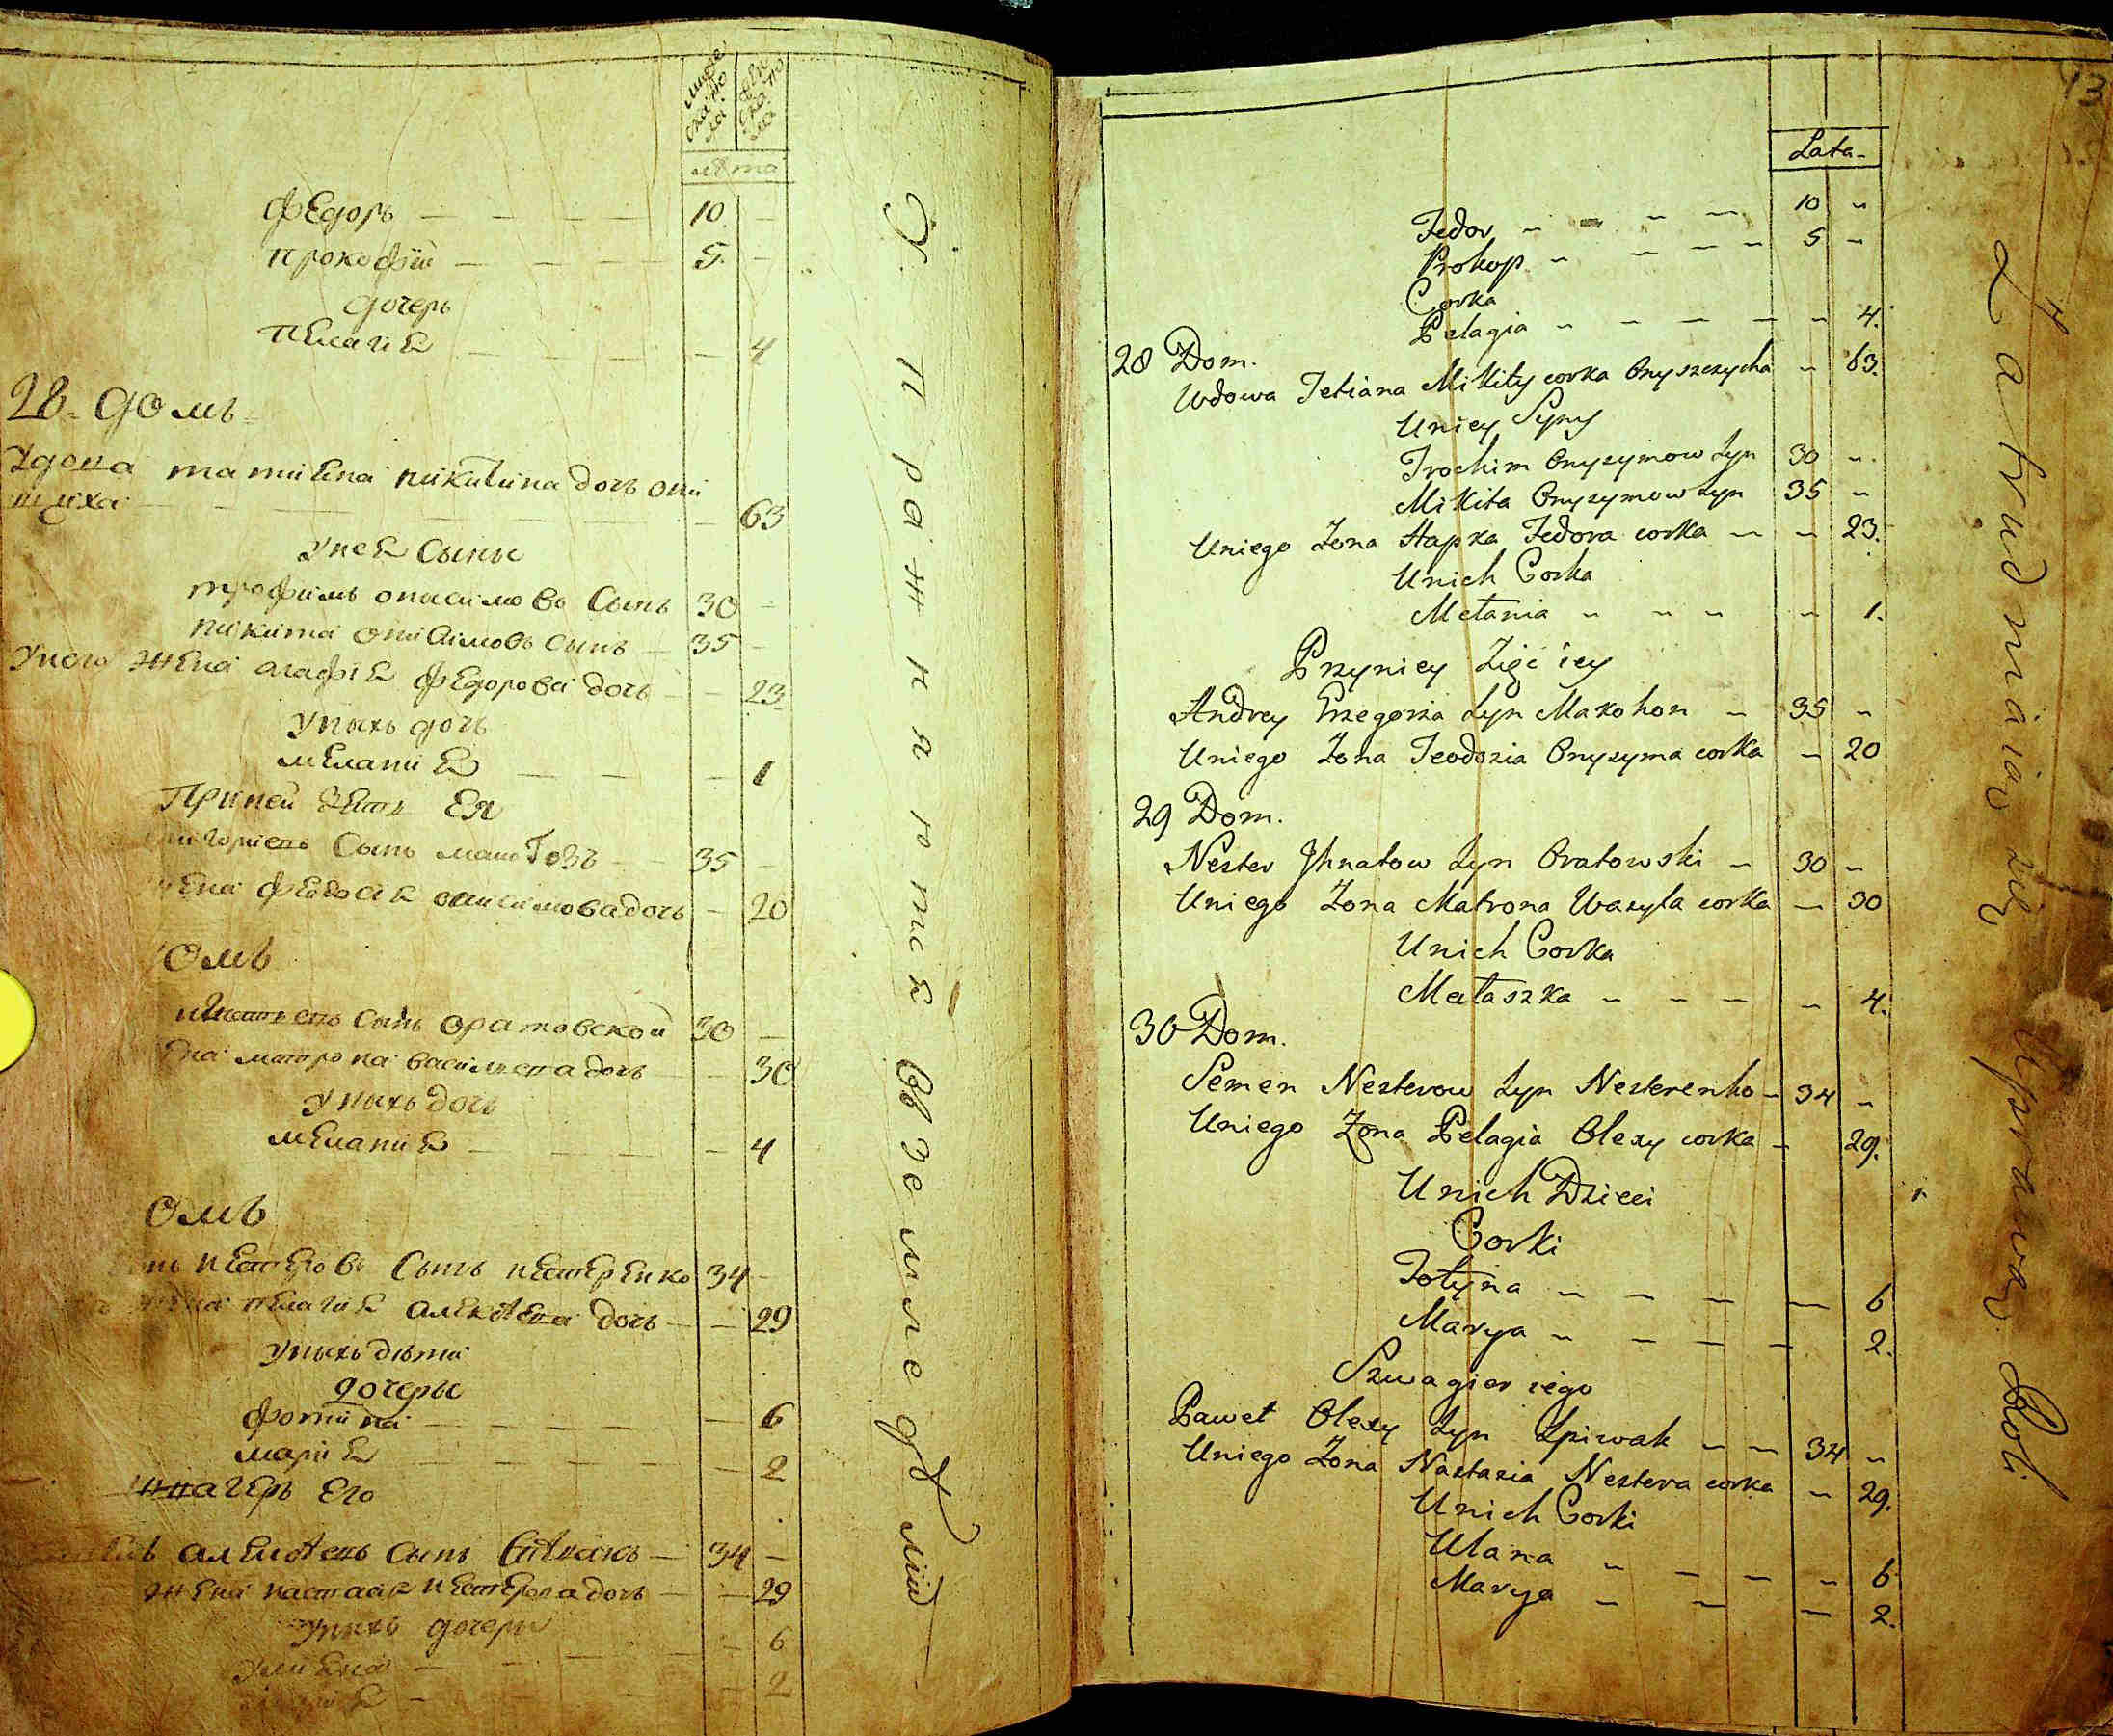 мужеска пола
женска пола
лѣта
федоръ — — — — 10 —
прокофій — — — — 5 —
дочерь
пелагиѣ — — — — 4
28. домъ
Удова татиена никитина дочь они
щиха — — — — 63
У неѣ Сыны
трофимъ онисимовъ Сынъ 30 —
никита онисимовъ сынъ — 35 —
У него жена агафіѣ федорова дочь — — 23
У ныхъ дочь
меланиѣ — — — 1
При ней зеть Ея
Сынъ — 35 —
жена федосиѣ онисимова дочь — 20
омъ
Сынъ оратовской 30 —
матрона василиева дочь — — 30
У ныхъ дочь
меланиѣ — — — — 4
омъ
нестеровъ Сынъ нестеренко 34 —
жена пелагиѣ алексѣева дочь — — 29
У ныхъ дѣти
дочеры
фотина — — — — 6
маріѣ — — — — 2
швагеръ его
алексѣевъ Сынъ Спѣвакъ — 34 —
жена настасиѣ нестерова дочь — — 29
У ныхъ дочеры
улиена — — — 6
— — — 2
Упражняются въ земледѣліи
43
Lata
Fedor 10 "
Prokop 5 "
Corka
Pelagia " 4.
28 Dom.
Wdowa Tetiana Mikity corka Onyszczycha " 63.
U niey Syny
Trochim Onyzymow Syn 30 "
Mikita Onyzymow Syn 35 "
U niego Zona Hapka Fedora corka " 23.
U nich Corka
Mełania " 1.
Przy niey Zięć iey
Andrey Grzegorza Syn Makohon 35 "
U niego Zona Teodozia Onyzyma corka " 20
29 Dom.
Nester Jhnatow Syn Oratowski 30 "
U niego Zona Matrona Wasyla corka " 30
U nich Corka
Mełaszka " 4.
30 Dom.
Semen Nesterow Syn Nesterenko 34 "
U niego Zona Pelagia Olexy corka 29.
U nich Dzieci
Corki
Fotyna 6
Marya 2.
Szwagier iego
Paweł Olexy Syn Spiwak 34 "
U niego Zona Nastasia Nestera corka " 29.
U nich Corki
Ulana " 6
Marya 2.
Zatrudniaią się Uprawą Roli